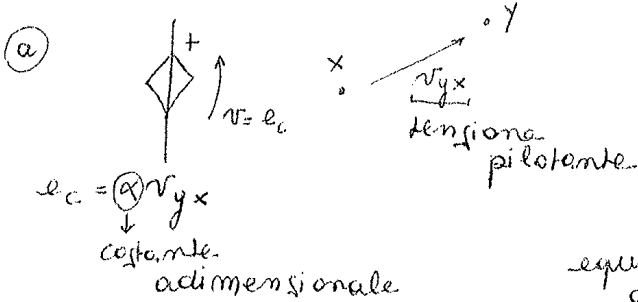 a
+
v = e_c
x
y
v_yx
tensione
pilotante
e_c = α v_yx
costante
adimensionale